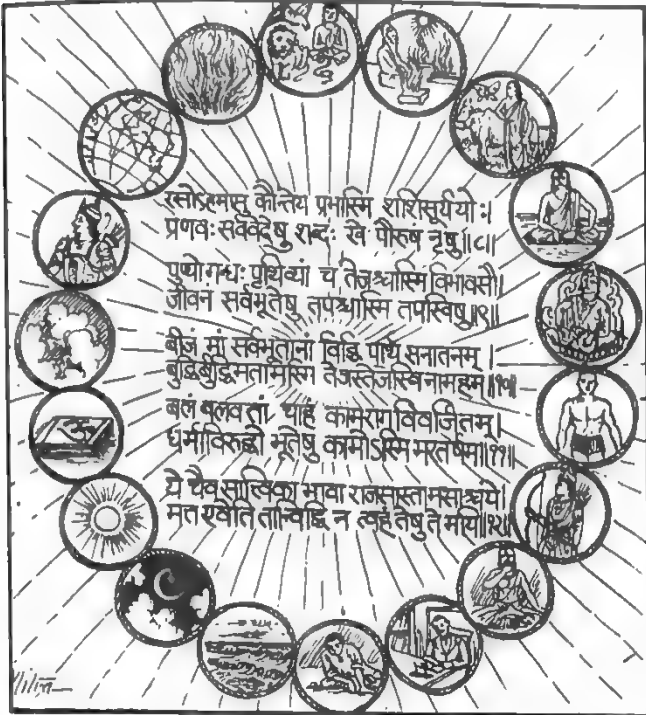 रसोऽहमप्सु कौन्तेय प्रभास्मि शशिसूर्ययोः।
प्रणवः सर्ववेदेषु शब्दः खे पौरुषं नृषु॥८॥
पुण्यो गन्धः पृथिव्यां च तेजश्चास्मि विभावसौ।
जीवनं सर्वभूतेषु तपश्चास्मि तपस्विषु॥९॥
बीजं मां सर्वभूतानां विद्धि पार्थ सनातनम्।
बुद्धिर्बुद्धिमतामस्मि तेजस्तेजस्विनामहम्॥१०॥
बलं बलवतां चाहं कामरागविवर्जितम्।
धर्माविरुद्धो भूतेषु कामोऽस्मि भरतर्षभ॥११॥
ये चैव सात्त्विका भावा राजसास्तामसाश्च ये।
मत्त एवेति तान्विद्धि न त्वहं तेषु ते मयि॥१२॥
ॐ